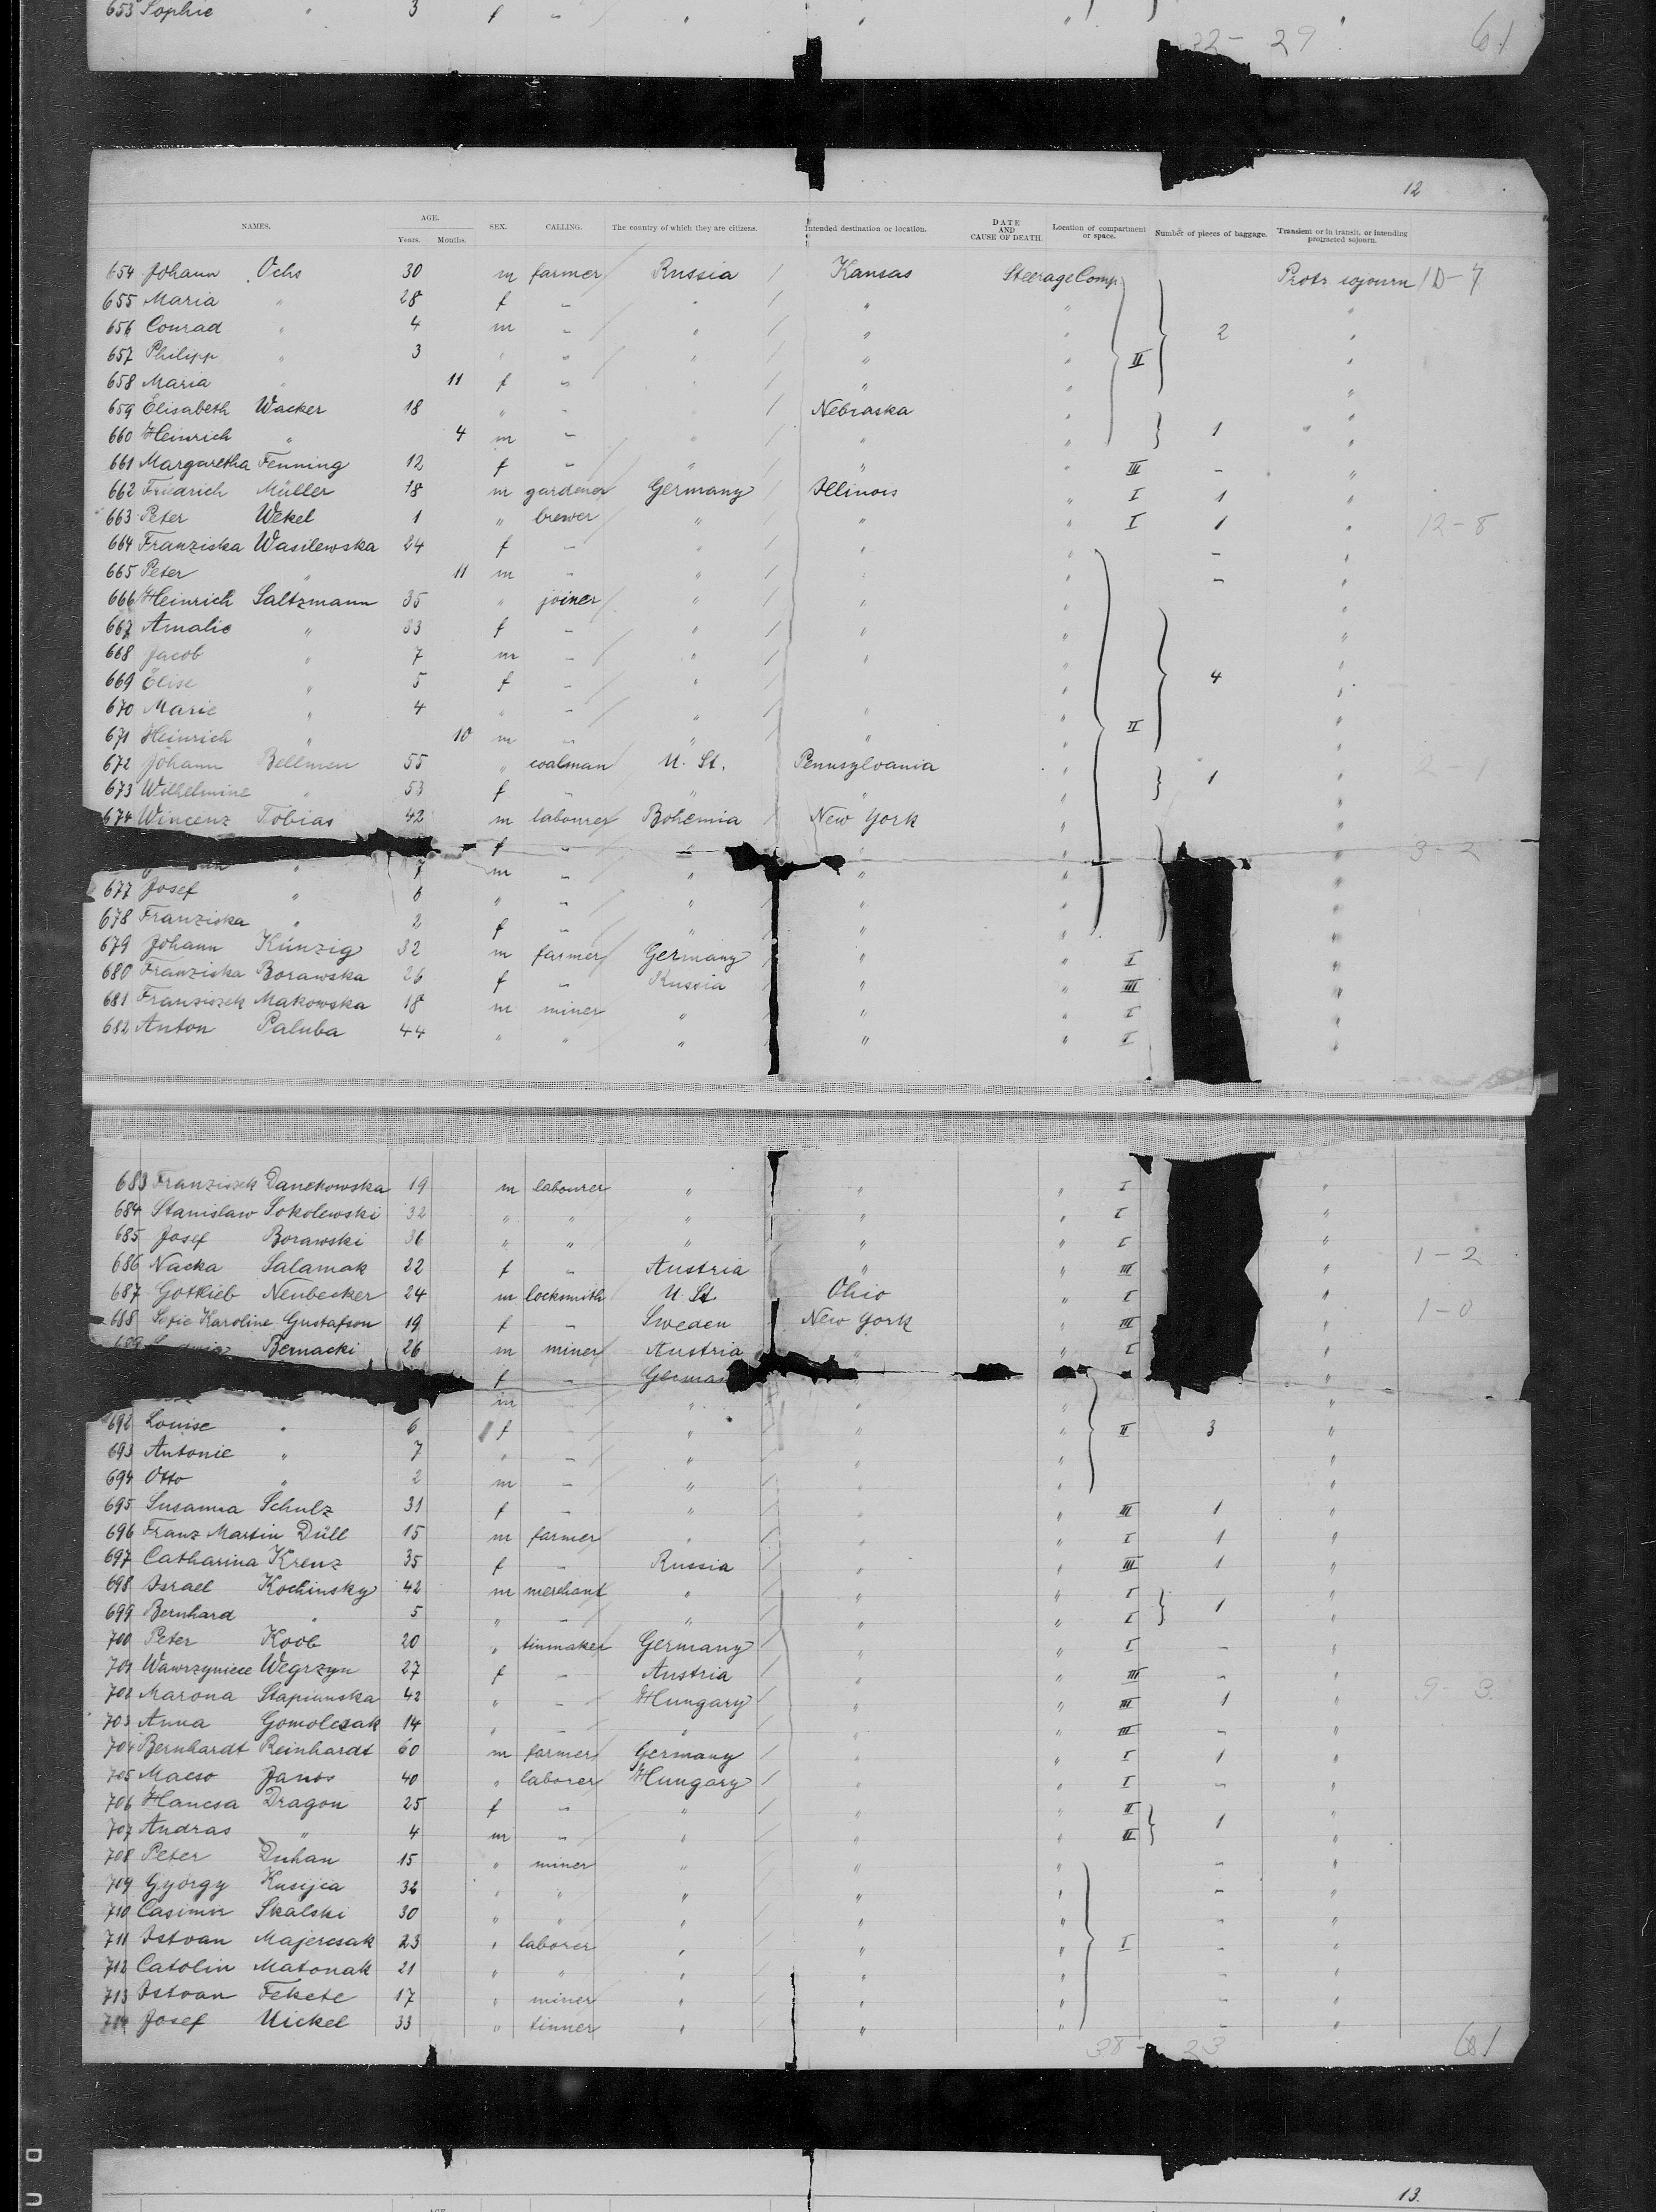 653 Sophie " 3 f - " " " "
32 - 29 61
12
NAMES. AGE. Years. Months. SEX. CALLING. The country of which they are citizens. Intended destination or location. DATE AND CAUSE OF DEATH. Location of compartment or space. Number of pieces of baggage. Transient or in transit, or intending protracted sojourn.
654 Johann Ochs 30 m farmer Russia Kansas Steerage Comp. Protr sojourn
655 Maria " 28 f - " " " "
656 Conrad " 4 m - " " " 2 "
657 Philipp " 3 " - " " " II "
658 Maria " 11 f - " " " "
659 Elisabeth Wacker 18 " - " Nebraska " "
660 Heinrich " 4 m - " " " 1 "
661 Margaretha Fenning 12 f - " " " III - "
662 Friedrich Müller 18 m gardener Germany Illinois " I 1 "
663 Peter Wekel 1 " brewer " " " I 1 " 12 - 8
664 Franziska Wasilewska 24 f - " " " - "
665 Peter " 11 m - " " " - "
666 Heinrich Saltzmann 35 " joiner " " " "
667 Amalie " 33 f - " " " "
668 Jacob " 7 m - " " " "
669 Elise " 5 f - " " 4 "
670 Marie " 4 " - " " " II "
671 Heinrich " 10 m - " " " "
672 Johann Bellmen 55 " coalman U. St. Pennsylvania " 1 " 2 - 1
673 Wilhelmine " 53 f - " " " "
674 Wincenz Tobias 42 m labourer Bohemia New York " "
f - " " " " 3 - 2
" 7 m - " " " "
677 Josef " 6 " - " " "
678 Franziska " 2 f - " " " "
679 Johann Künzig 32 m farmer Germany " " I "
680 Franziska Borawska 26 f - Russia " " III "
681 Franziszek Makowska 18 m miner " " " I "
682 Anton Paluba 44 " " " " " I "
683 Franziszek Danckowska 19 m labourer " " " I "
684 Stanislaw Sokolewski 32 " " " " " I "
685 Josef Borawski 36 " " " " " I "
686 Nacka Salamak 22 f - Austria " " III " 1 - 2
687 Gottlieb Neubecker 24 m locksmith U. St Ohio " I "
688 Sofie Karoline Gustafson 19 f - Sweden New York " III " 1 - 0
689 Bernacki 26 m miner Austria " " I "
f - German "
m " " " "
692 Louise " 6 f - " " " II 3 "
693 Antonie " 7 " - " " " "
694 Otto " 2 m - " " " "
695 Susanna Schulz 31 f - " " " III 1 "
696 Franz Martin Düll 15 m farmer " " " I 1 "
697 Catharina Krenz 35 f - Russia " " III 1 "
698 Israel Kochinsky 42 m merchant " " " I "
699 Bernhard " 5 " - " " " I 1 "
700 Peter Koob 20 " tinmaker Germany " " I - "
701 Wawrzyniece Wegrzyn 27 f - Austria " " III - "
702 Marona Stapianska 42 " - Hungary " " III 1 " 9 - 3
703 Anna Gomolcsak 14 " - " " " III - "
704 Bernhardt Reinhardt 60 m farmer Germany " " I 1 "
705 Macso Janos 40 " laborer Hungary " " I - "
706 Hancsa Dragon 25 f - " " " II "
707 Andras " 4 m - " " " II 1 "
708 Peter Duhan 15 " miner " " " - "
709 György Kusijca 32 " " " " " - "
710 Casimir Skalski 30 " " " " " - "
711 Istvan Majercsak 23 " laborer " " " I - "
712 Catolin Matonak 21 " " " " " - "
713 Istvan Fekete 17 " miner " " " - "
714 Josef Mickel 33 " tinner " " " - "
38 - 23 61
13.